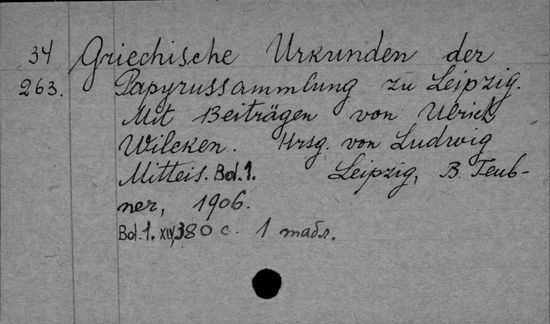 34 Griechische Urkunden der
263. Papyrussammlung zu Leipzig.
Mit Beiträgen von Ulrich
Wilcken. Hrsg. von Ludwig
Mitteis. Bd. 1. Leipzig, B. Teub-
ner, 1906.
Bd. 1. XIV, 380 с. 1 табл.